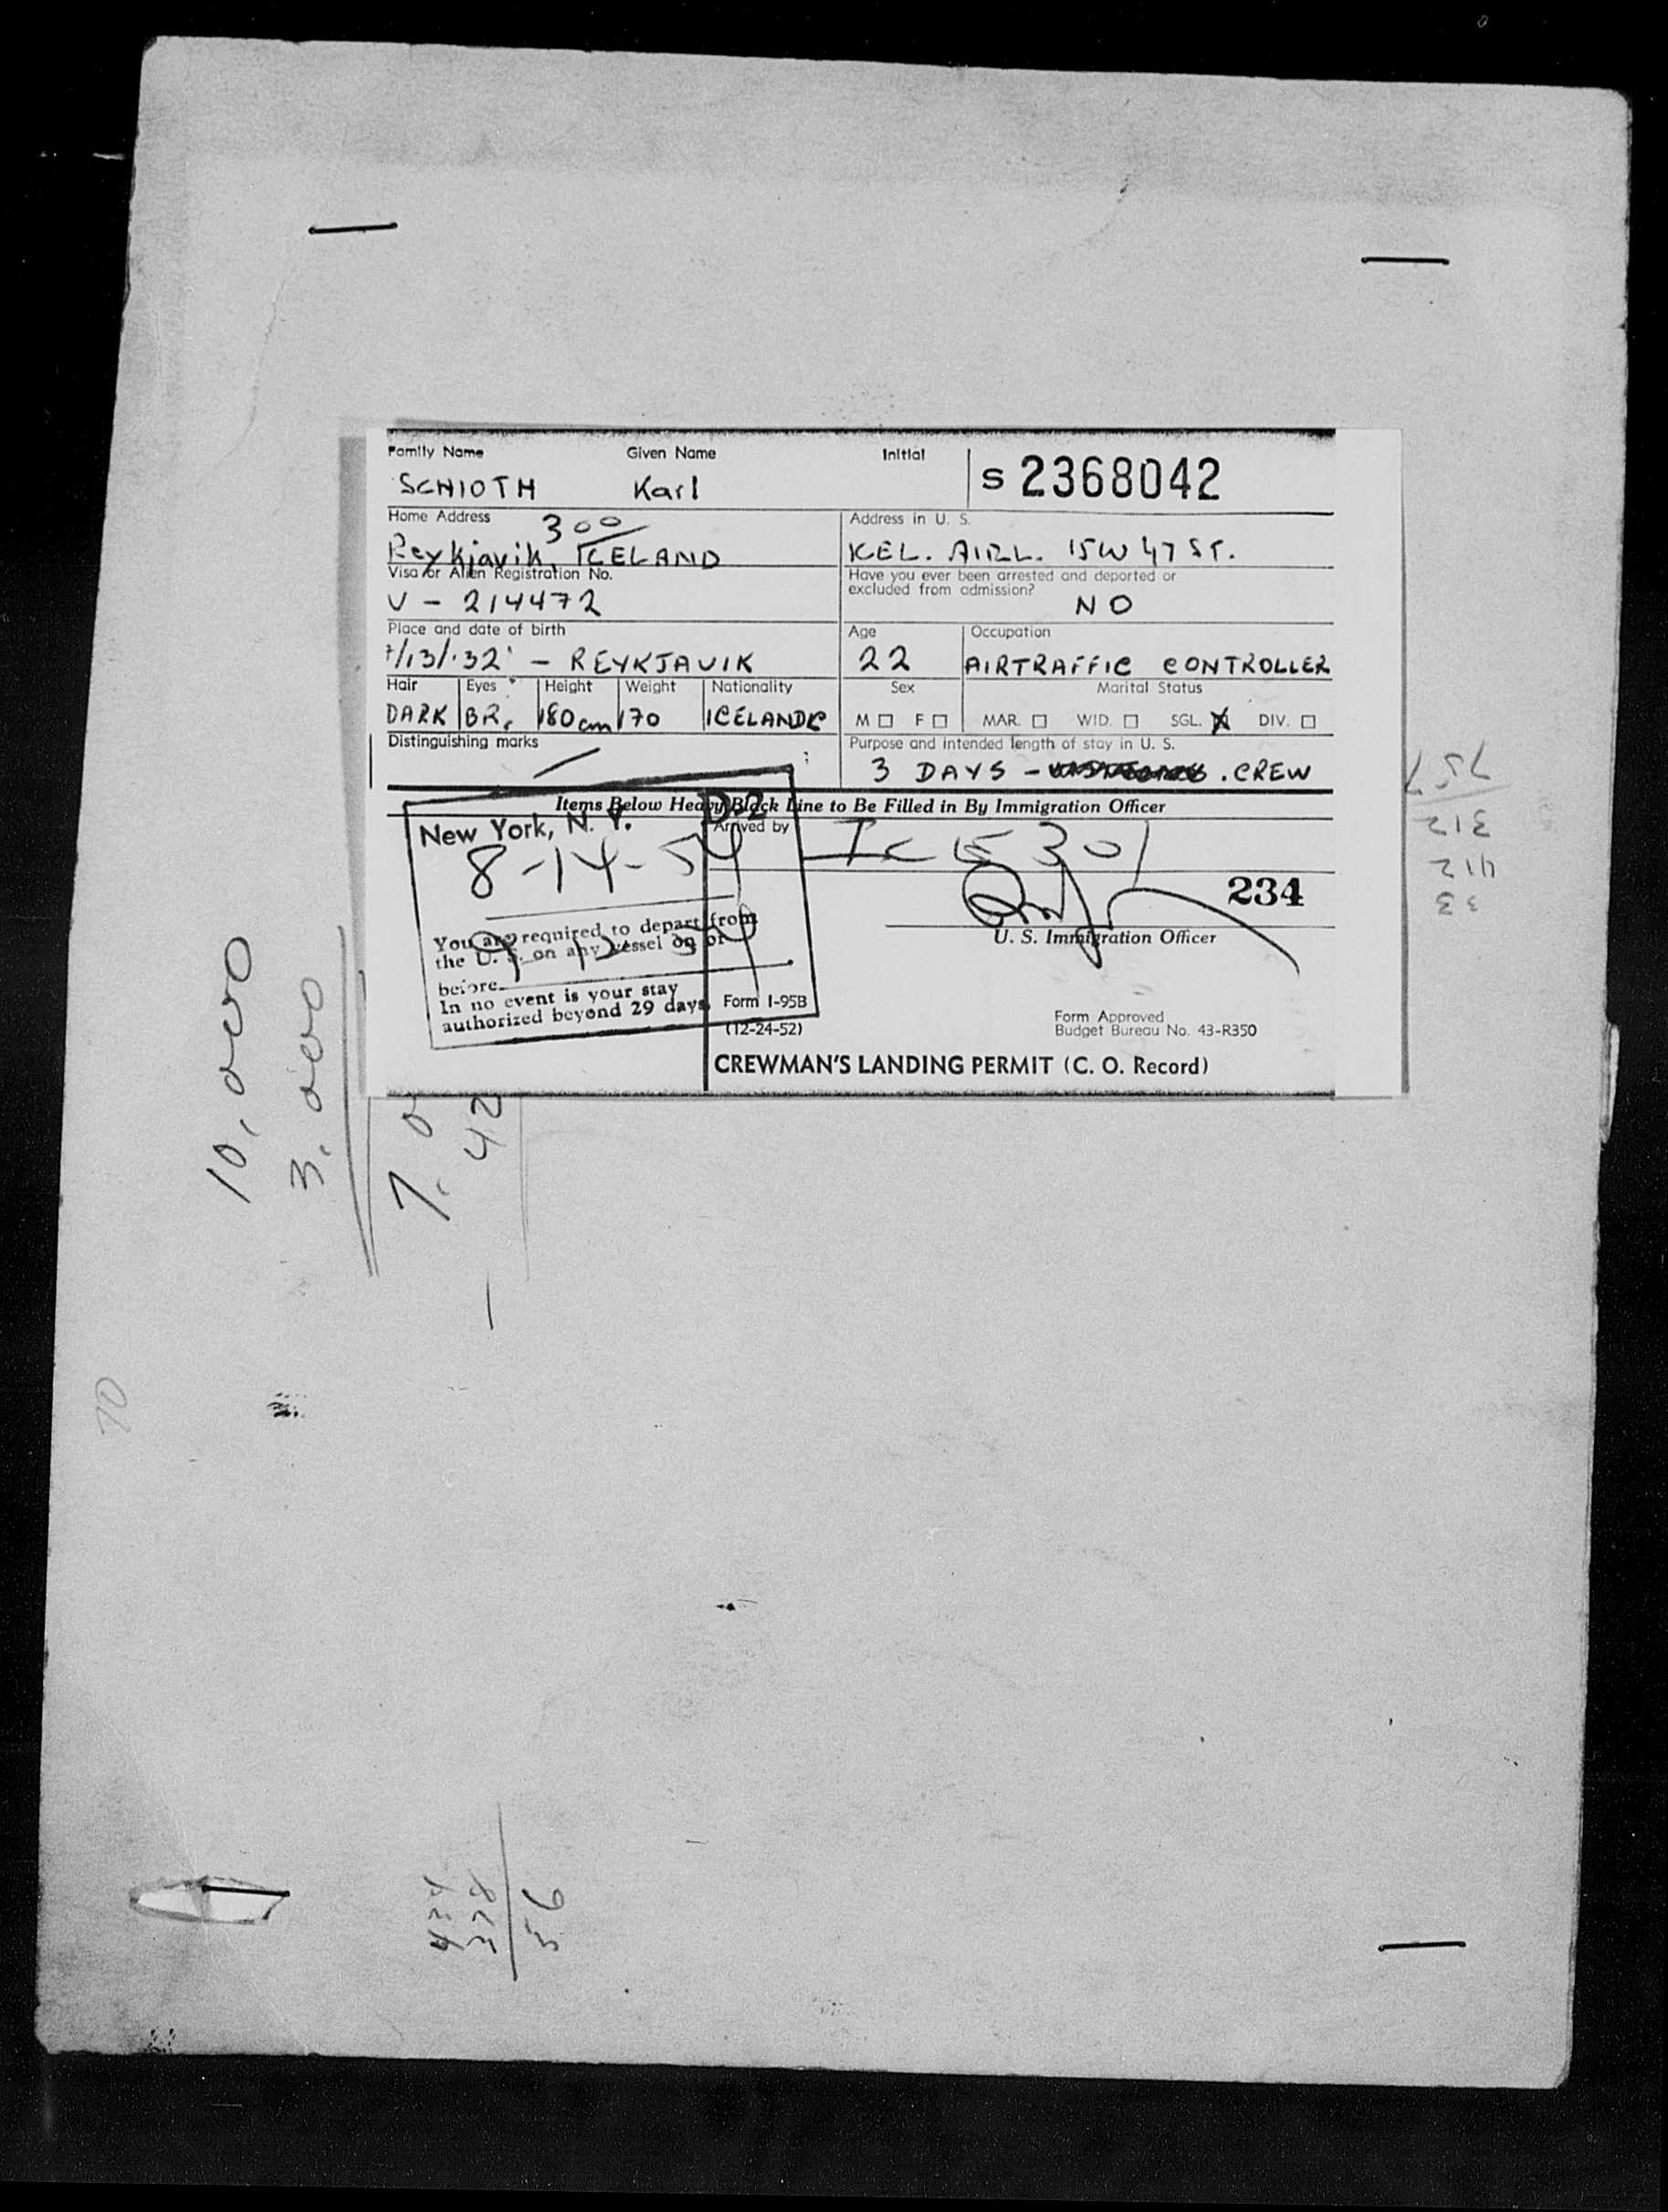 Family Name Given Name Initial
SCHIOTH Karl S 2368042
Home Address Address in U. S.
300
Reykjavik, ICELAND ICEL. AIRL. 15W 47 ST.
Visa or Alien Registration No. Have you ever been arrested and deported or
excluded from admission?
V - 214472 NO
Place and date of birth Age Occupation
7/13/.32' - REYKJAVIK 22 AIRTRAFFIC CONTROLLER
Hair Eyes Height Weight Nationality Sex Marital Status
DARK BR. 180cm 170 ICELANDIC M F MAR. WID. SGL. X DIV.
Distinguishing marks Purpose and intended length of stay in U. S.
3 DAYS - . CREW
Items Below Heavy Black Line to Be Filled in By Immigration Officer
New York, N. Y. D2 Arrived by ICE 301
8-14-54
234
You are required to depart from
the U. S. on any vessel on or
before
U. S. Immigration Officer
In no event is your stay
authorized beyond 29 days
Form I-95B
(12-24-52)
Form Approved
Budget Bureau No. 43-R350
CREWMAN'S LANDING PERMIT (C. O. Record)
10,000
3,000
7.0
42
70
757
312
412
33
434
378
56